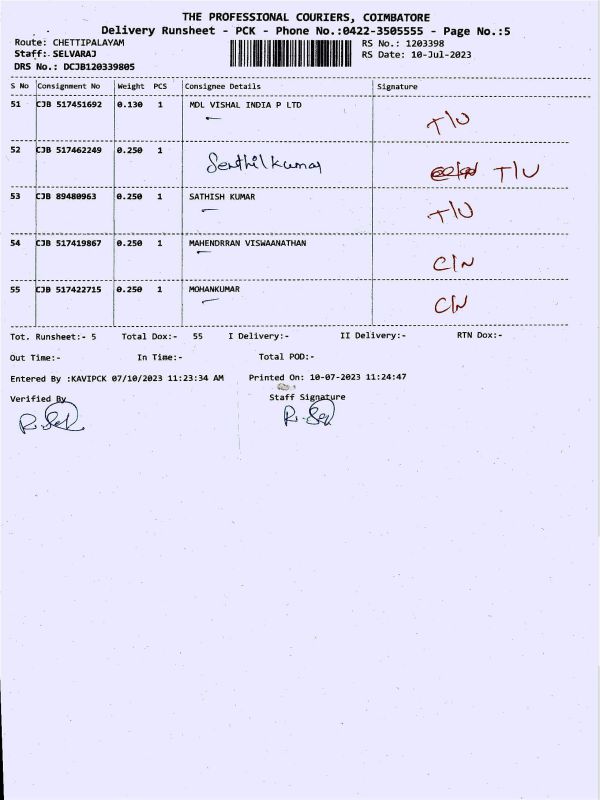 THE PROFESSIONAL COURIERS, COIMBATORE
Delivery Runsheet - PCK - Phone No.:0422-3505555 - Page No.:5
Route: CHETTIPALAYAM RS No.: 1203398
Staff: SELVARAJ RS Date: 10-Jul-2023
DRS No.: DCJB120339805
S No Consignment No Weight PCS Consignee Details Signature
51 CJB 517451692 0.130 1 MDL VISHAL INDIA P LTD
T/U
52 CJB 517462249 0.250 1 Senthilkumar T/U
53 CJB 89480963 0.250 1 SATHISH KUMAR
T/U
54 CJB 517419867 0.250 1 MAHENDRRAN VISWAANATHAN
C/N
55 CJB 517422715 0.250 1 MOHANKUMAR
C/N
Tot. Runsheet:- 5 Total Dox:- 55 I Delivery:- II Delivery:- RTN Dox:-
Out Time:- In Time:- Total POD:-
Entered By :KAVIPCK 07/10/2023 11:23:34 AM Printed On: 10-07-2023 11:24:47
Verified By Staff Signature